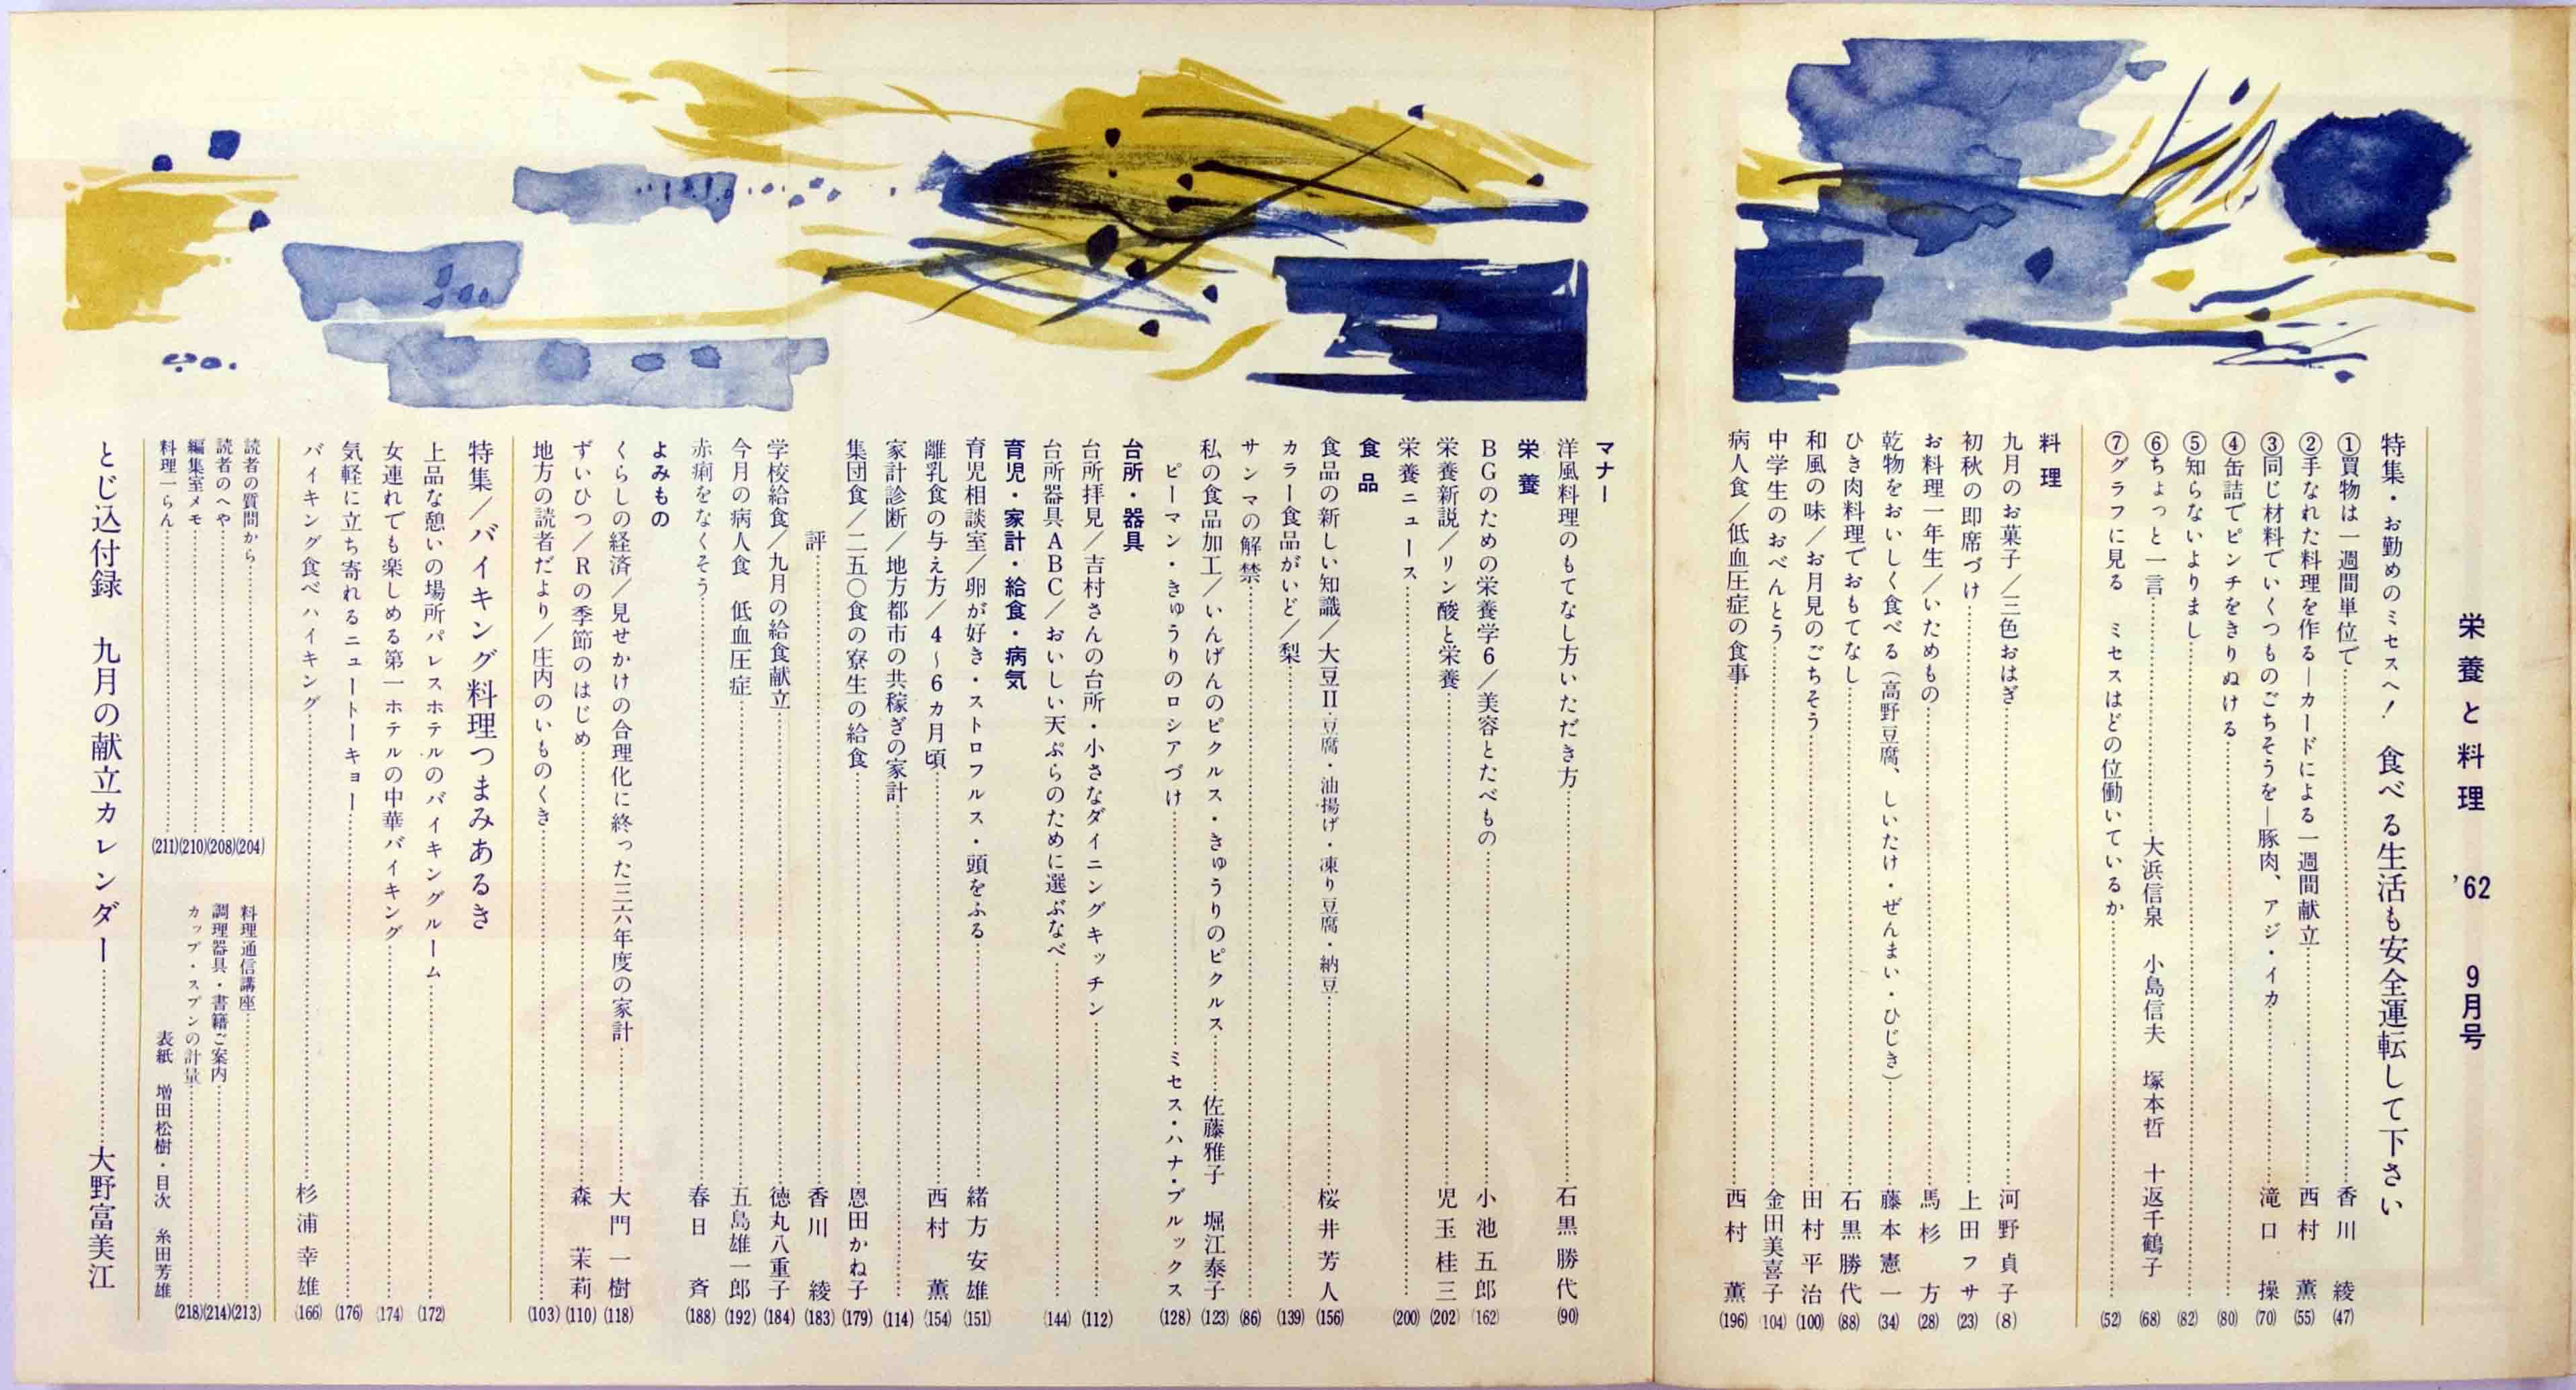 栄養と料理 '62 9月号
特集・お勤めのミセスへ! 食べる生活も安全運転して下さい
①買物は一週間単位で……香川 綾(47)
②手なれた料理を作る―カードによる一週間献立……西村 薫(55)
③同じ材料でいくつものごちそうを―豚肉、アジ・イカ……滝口 操(70)
④缶詰でピンチをきりぬける……(80)
⑤知らないよりまし……(82)
⑥ちょっと一言……大浜信泉 小島信夫 塚本哲 十返千鶴子(68)
⑦グラフに見る ミセスはどの位働いているか……(52)
料理
九月のお菓子/三色おはぎ……河野貞子(8)
初秋の即席づけ……上田フサ(23)
お料理一年生/いためもの……馬杉 方(28)
乾物をおいしく食べる(高野豆腐、しいたけ・ぜんまい・ひじき)……藤本憲一(34)
ひき肉料理でおもてなし……石黒勝代(88)
和風の味/お月見のごちそう……田村平治(100)
中学生のおべんとう……金田美喜子(104)
病人食/低血圧症の食事……西村 薫(196)
マナー
洋風料理のもてなし方いただき方……石黒勝代(90)
栄養
BGのための栄養学6/美容とたべもの……小池五郎(162)
栄養新説/リン酸と栄養……児玉桂三(202)
栄養ニュース……(200)
食品
食品の新しい知識/大豆II 豆腐・油揚げ・凍り豆腐・納豆……桜井芳人(156)
カラー食品がいど/梨……(139)
サンマの解禁……(86)
私の食品加工/いんげんのピクルス・きゅうりのピクルス……佐藤雅子 堀江泰子(123)
ピーマン・きゅうりのロシアづけ……ミセス・ハナ・ブルックス(128)
台所・器具
台所拝見/吉村さんの台所・小さなダイニングキッチン……(112)
台所器具ABC/おいしい天ぷらのために選ぶなべ……(144)
育児・家計・給食・病気
育児相談室/卵が好き・ストロフルス・頭をふる……緒方安雄(151)
離乳食の与え方/4〜6カ月頃……西村 薫(154)
家計診断/地方都市の共稼ぎの家計……(114)
集団食/二五〇食の寮生の給食……恩田かね子(179)
評……香川 綾(183)
学校給食/九月の給食献立……徳丸八重子(184)
今月の病人食 低血圧症……五島雄一郎(192)
赤痢をなくそう……春日 斉(188)
よみもの
くらしの経済/見せかけの合理化に終った三六年度の家計……大門一樹(118)
ずいひつ/Rの季節のはじめ……森 茉莉(110)
地方の読者だより/庄内のいものくき……(103)
特集/バイキング料理つまみあるき
上品な憩いの場所パレスホテルのバイキングルーム……(172)
女連れでも楽しめる第一ホテルの中華バイキング……(174)
気軽に立ち寄れるニュートーキョー……(176)
バイキング食べハイキング……杉浦幸雄(166)
読者の質問から……(204)
読者のへや……(208)
編集室メモ……(210)
料理一らん……(211)
料理通信講座……(213)
調理器具・書籍ご案内……(214)
カップ・スプンの計量……(218)
表紙 増田松樹・目次 糸田芳雄
とじ込付録 九月の献立カレンダー……大野富美江